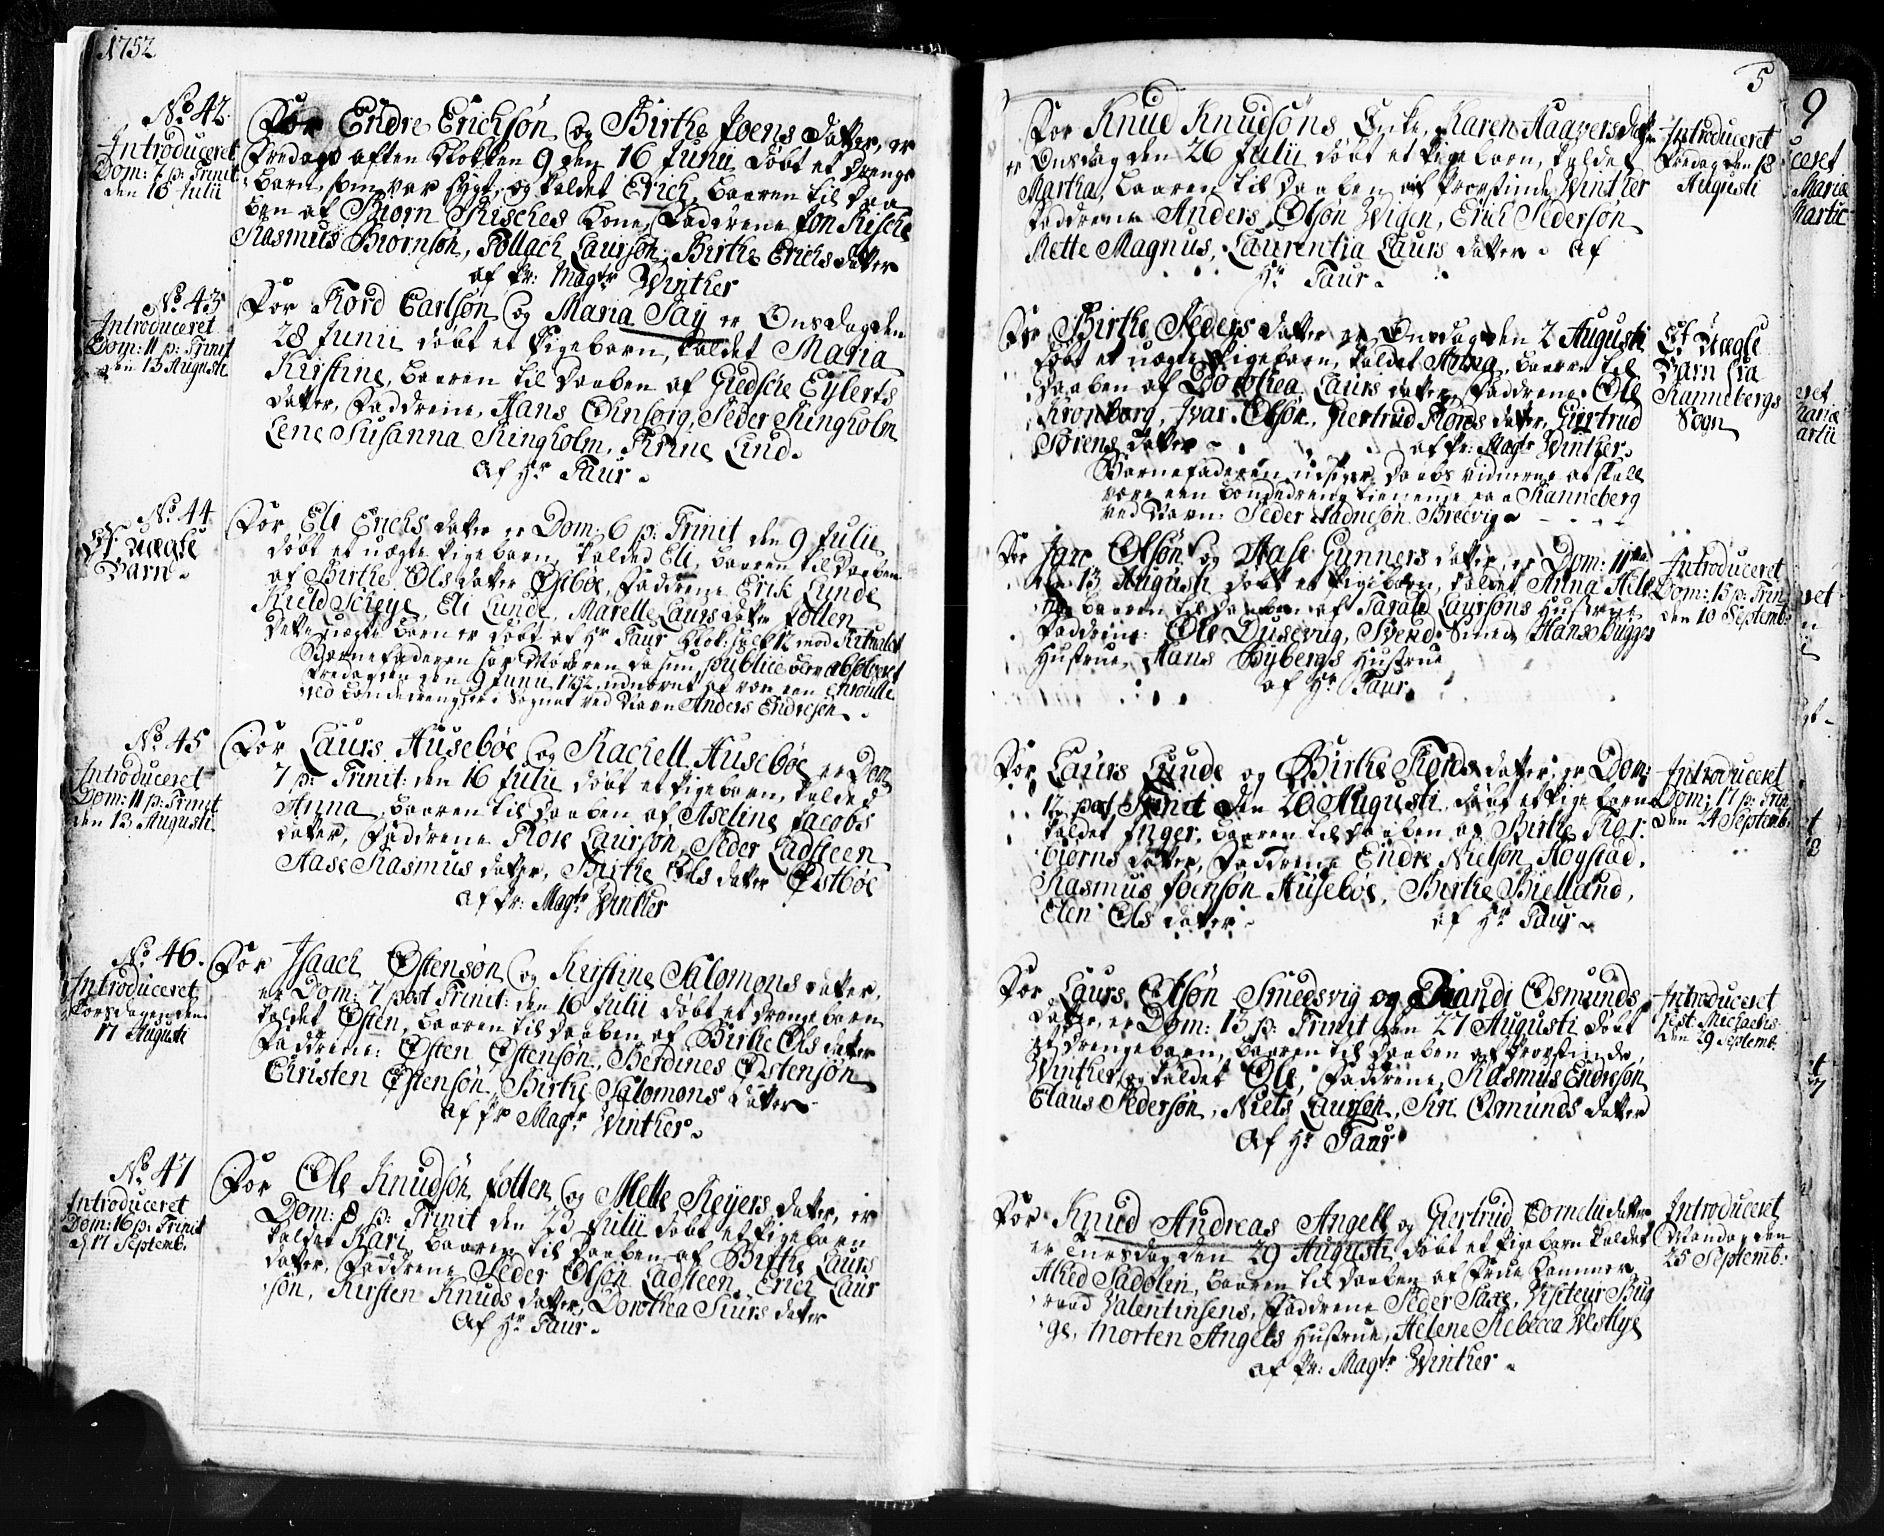 1752
No. 42.
Introduceret
Dom: 7 p: Trinit:
den 16 Julii
For Endre Erichsön og Birthe Joens datter, er
Fredags aften Klokken 9 den 16 Junii döbt et drenge
barn, som var sygt, og kaldet Erich, baaren til daa
ben af Biörn Risches Kone, Faddrene Jon Rische
Rasmus Biörnsön, Tollach Laursön, Birthe Erichs datter
af Pr: Magr Winther
No. 43
Introduceret
Dom: 11 p: Trinit
den 13 Augusti
For Tord Carlsön og Maria Say er Onsdag den
28 Junii döbt et Pigebarn, kaldet Maria
Kirstine, baaren til daaben af Giedsche Eylerts
datter, Faddrene, Hans Ohnsorg, Peder Ringholm
Lene Susanna Ringholm, Trine Lind.
af Hr Taur.
No. 44
Et uægte
Barn.
For Eli Erichs datter er Dom: 6 p: Trinit den 9 Julii
döbt et uægte Pigebarn, kaldet Eli, baaren til daaben
af Birthe Ols datter Östböe, Faddrene Erik Lunde
Kield Scheye, Eli Lunde, Marelle Laurs datter Jotten
dette uægte barn er döbt af Hr Taur mod Ritualet
Barnefaderen har Moderen da hun publice blev absolveret
Fredagen den 9 Junii 1752 udnævnt at være en enroulle
red bondedreng her i Sognet ved Navn Anders Endresön.
No. 45
Introduceret
Dom: 11 p: Trinit
den 13 Augusti
For Laurs Huseböe og Rachell Huseböe er Dom
7 p: Trinit: den 16 Julii döbt et Pigebarn, kalded
Anna, baaren til daaben af Aseline Jacobs
datter, Faddrene Tore Laursön, Peder Ladsteen
Aase Rasmus datter, Birthe Ols datter Östböe
af Pr: Magr Winther
No. 46.
Introduceret
Torsdagen den
17 Augusti
For Isaach Östensön og Kirstine Salomons datter,
er Dom: 7 post Trinit: den 16 Julii döbt et drengebarn
kaldet Östen, baaren til daaben af Birthe Ols datter
Faddrene: Östen Östensön, Berdines Östensön
Christen Östensön, Birthe Salomons datter
af Pr Magr Winther.
No. 47
Introduceret
Dom: 16 p: Trinit
d. 17 Septemb.
For Ole Knudsön Jotten og Mette Reyers datter, er
Dom: 8 p: Trinit den 23 Julii döbt et Pigebarn
kaldet Kari, baaren til daaben af Birthe Laurs
datter, Faddrene Peder Olsön Ladsteen, Erich Laur
sön, Kirsten Knuds datter, Dorothea Siurs datter
af Hr Taur.
5
For Knud Knudsöns Encke, Karen Haavers datter
er Onsdag den 26 Julii döbt et Pigebarn, kaldet
Martha, baaren til daaben af Provstinde Winther
Faddrene Anders Olsön Wigen, Erich Pedersön
Mette Magnus, Laurentia Laurs datter. af
Hr Taur.
Introduceret
Fredag den 18
Augusti
For Birthe Peders datter er Onsdag den 2 Augusti
döbt et uægte Pigebarn, kaldet Anna, baaren til
daaben af Dorothea Laurs datter, Faddrene Ole
Kronborg, Ivar Olsön, Giertrud Tores datter, Giertrud
Sörens datter af Pr: Magr Winther.
Barnefaderen udsiger daabs vidnerne at skall
være een bondedreng tienende paa Ranneberg
ved Navn: Peder Aadnesön Breevig.
Et uægte
Barn fra
Rannebergs
Sogn
For Jan Olsön og Aase Gunners datter er Dom: 11
den 13 Augusti döbt et Pigebarn, kaldet Anna Hele
na, baaren til daaben af Tarald Laursöns Hustrue
Faddrene: Ole Dusevig, Svend Smed, Hans Bugges
Hustrue, Hans Bybergs Hustrue
af Hr Taur.
Introduceret
Dom: 15 p: Trin
den 10 Septemb:
For Laurs Lunde og Birthe Tords datter, er Dom:
12 post Trinit den 20 Augusti döbt et Pigebarn
kaldet Inger, baaren til daaben af Birthe Tor
biörns datter, Faddrene Endre Nielsön Hogstad,
Rasmus Joensön Huseböe, Birthe Bielland,
Elen Ols datter. af Hr Taur.
Introduceret
Dom: 17 p: Trin
den 24 Septemb:
For Laurs Olsön Smedsvig og Brandi Osmunds
datter, er Dom: 13 p: Trinit den 27 Augusti döbt
et drengebarn, baaren til daaben af Provstinde
Winther, og kaldet Ole, Faddrene, Rasmus Endresön
Claus Pedersön, Niels Laursön, Siri Osmunds datter
Af Hr Taur
Introduceret
fest: Michaelis
den 29 Septemb.
For Knud Andreas Angell og Giertrud Cornelii datter
er Tirsdag den 29 Augusti, döbt et Pigebarn kaldet
Ahed Sadolin, baaren til daaben af Frue Kammer
raad Valentinsens, Faddrene Peder Saxe, Visiteur Bug
ge, Morten Angels Hustrue, Helene Rebecca Westlye
af Pr: Magtr Winther.
Introduceret
Mandag den
25 Septemb:
9